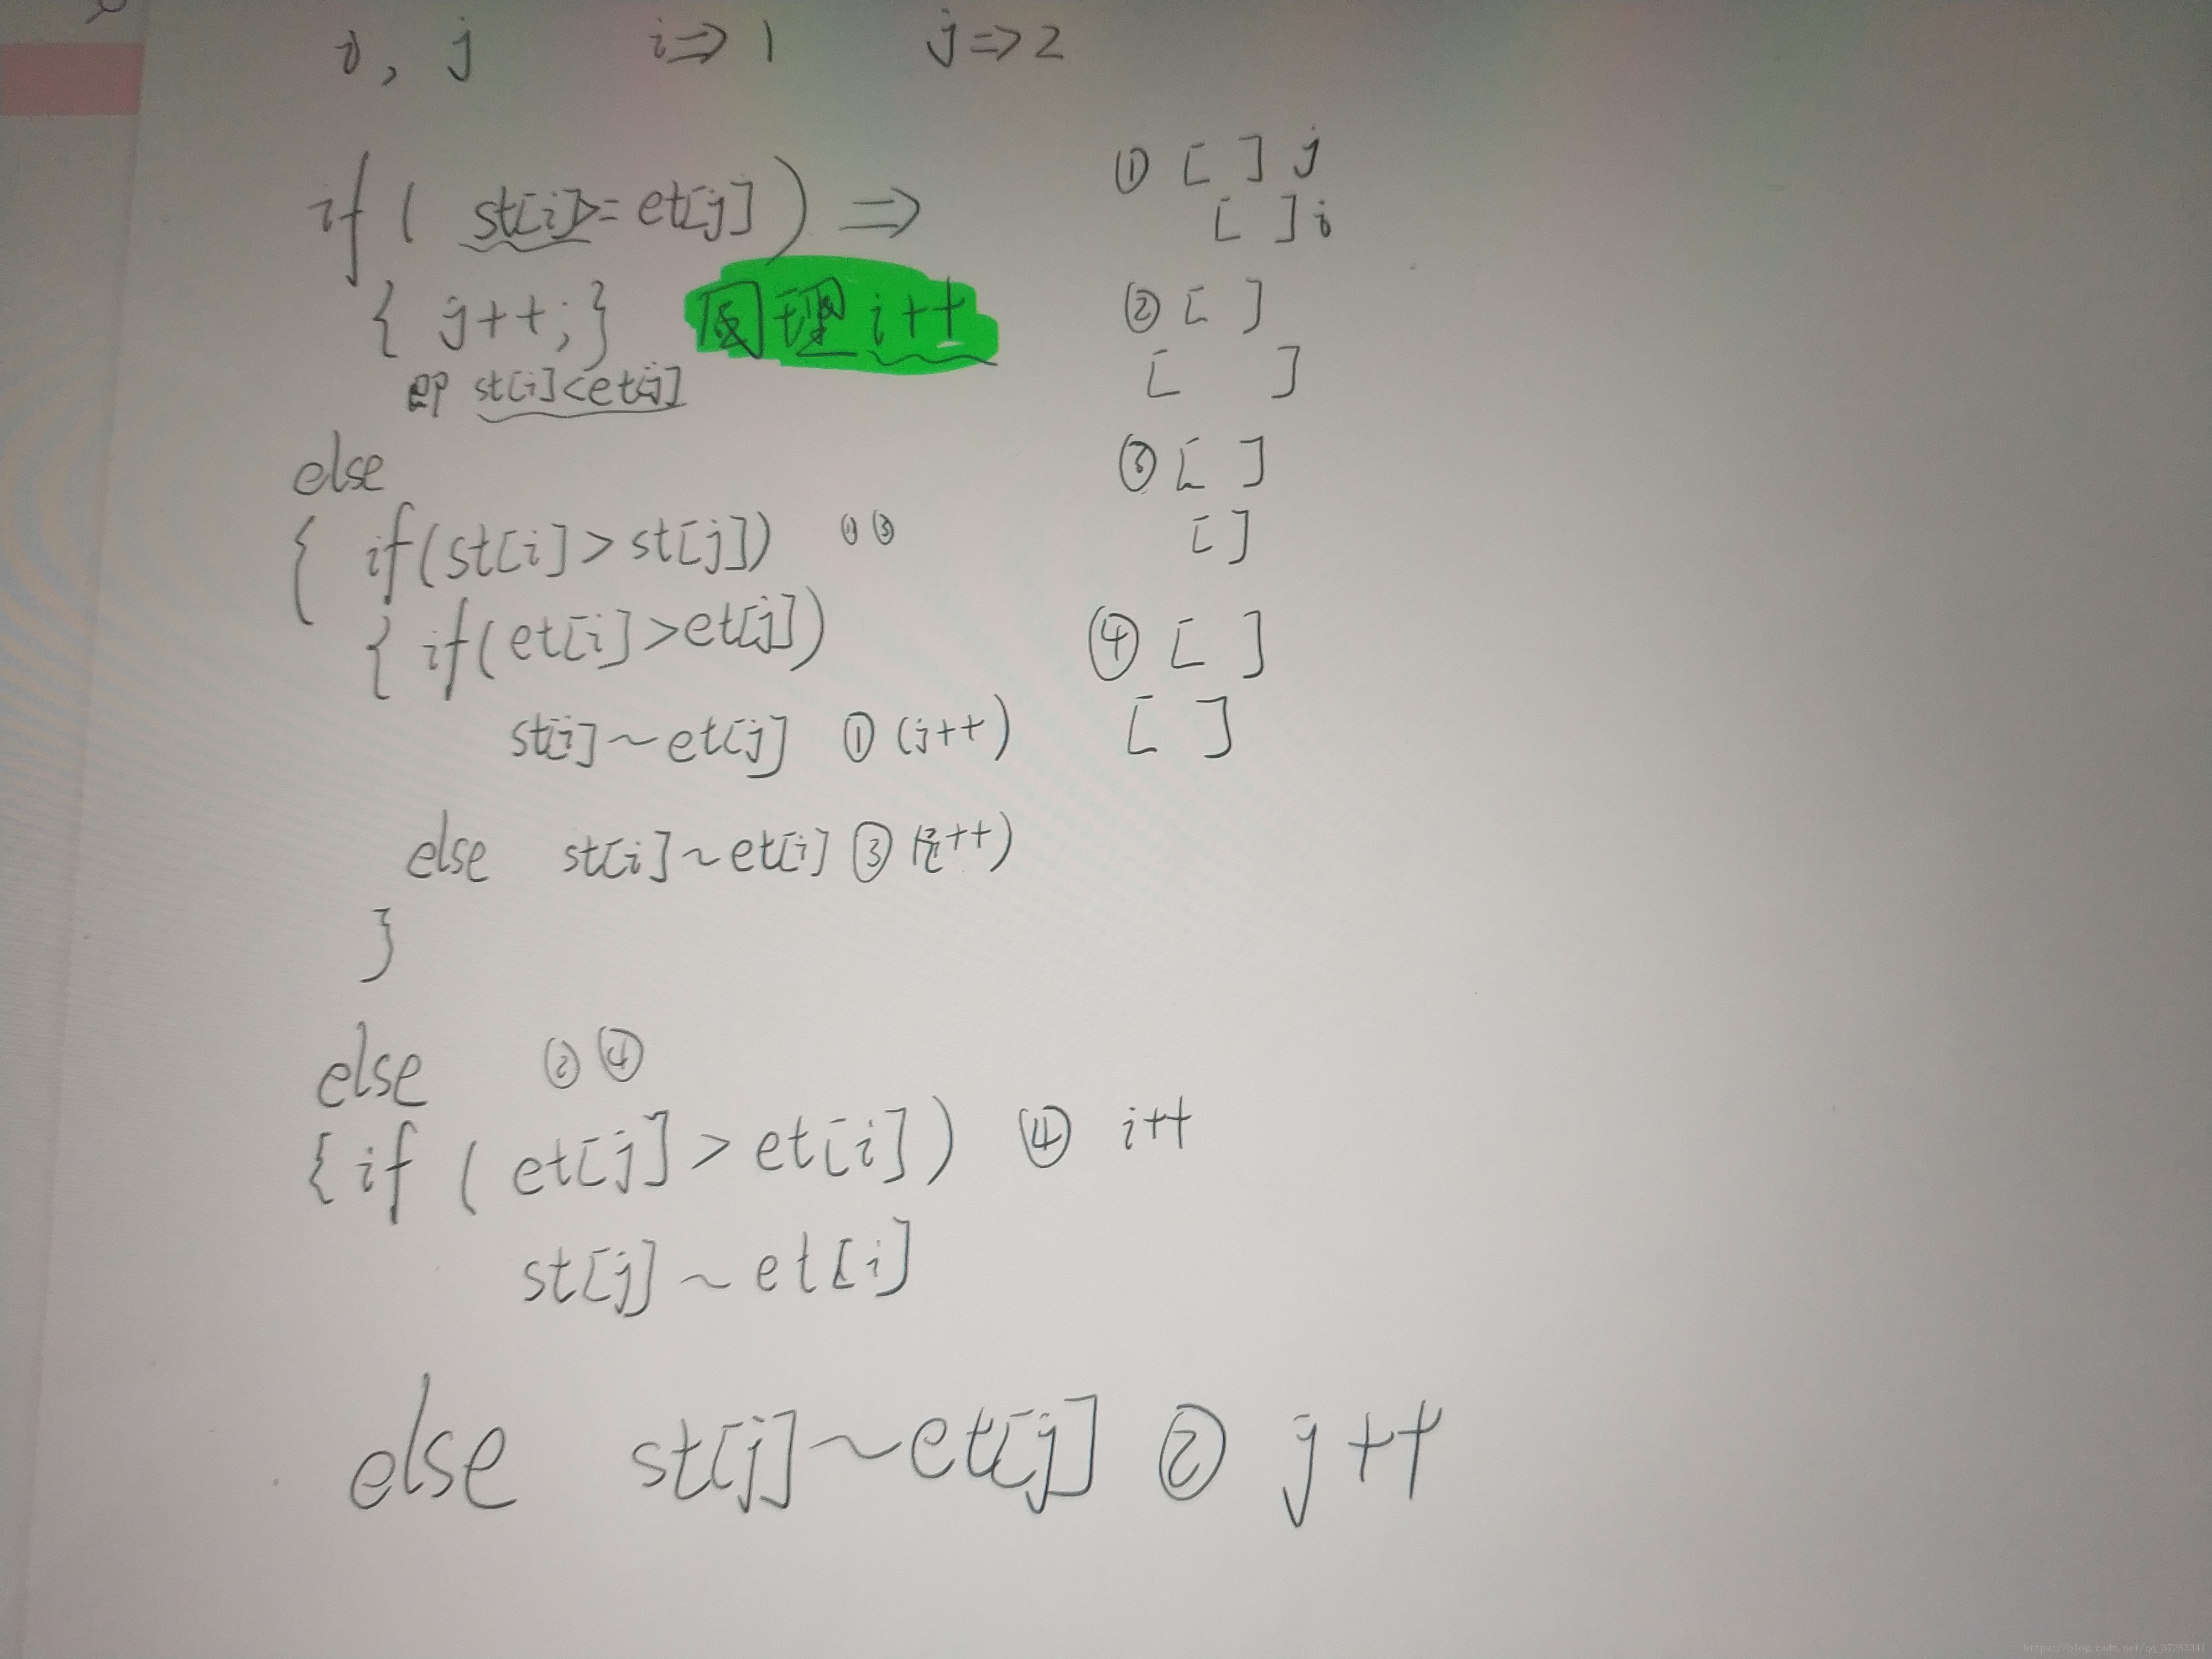 i, j i⇒1 j⇒2
if ( st[i]>=et[j] ) ⇒
{ j++; } 同理 i++
即 st[i]<et[j]
else
{ if(st[i]>st[j]) ①③
{ if(et[i]>et[j])
st[i]~et[j] ① (j++)
else st[i]~et[i] ③ (i++)
}
else ②④
{if ( et[j]>et[i] ) ④ i++
st[j]~et[i]
else st[j]~et[j] ② j++
① [ ] j
[ ] i
② [ ]
[ ]
③ [ ]
[ ]
④ [ ]
[ ]
https://blog.csdn.net/qq_37283341